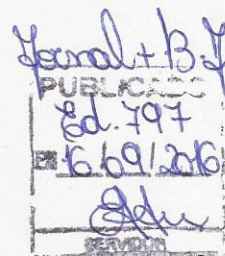 Jornal + B.J
PUBLICADO
Ed. 797
EM 16/09/2016
SERVIDOR